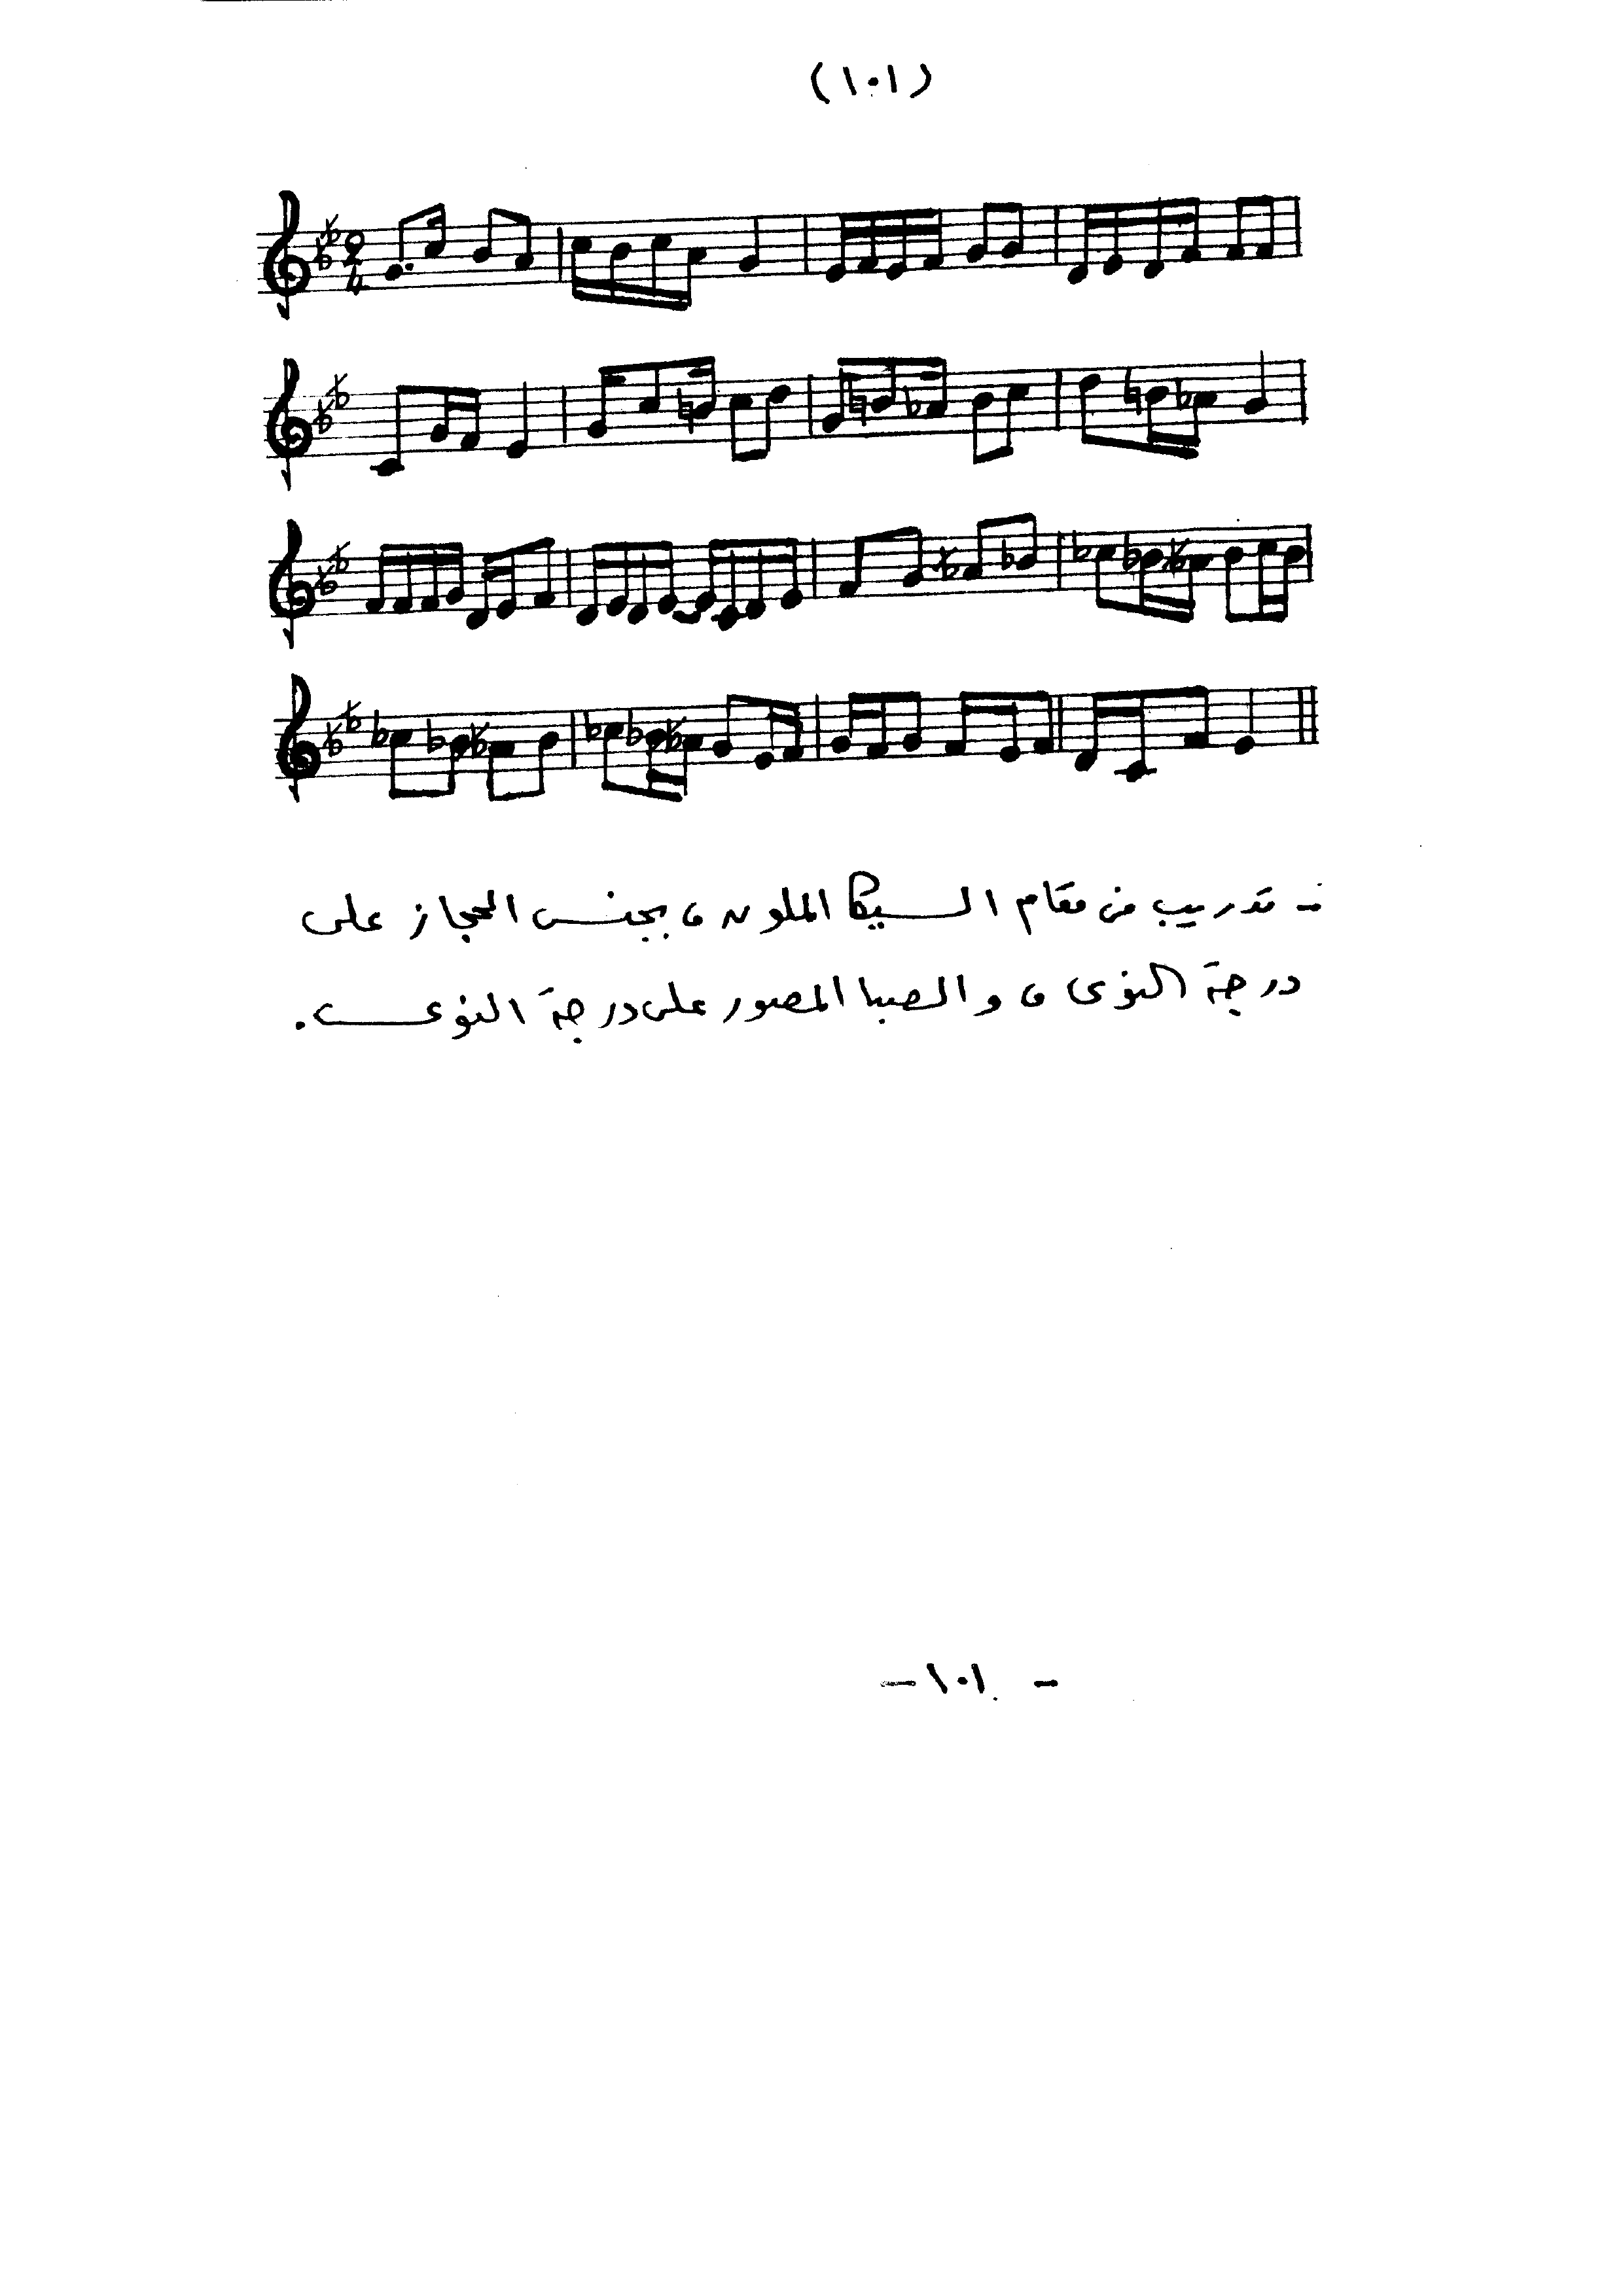 (١٠١)
2
4
- تدريب من مقام السيكا الملون ، بجنس الحجاز على
درجة النوى ، والصبا المصور على درجة النوى .
- ١٠١ -